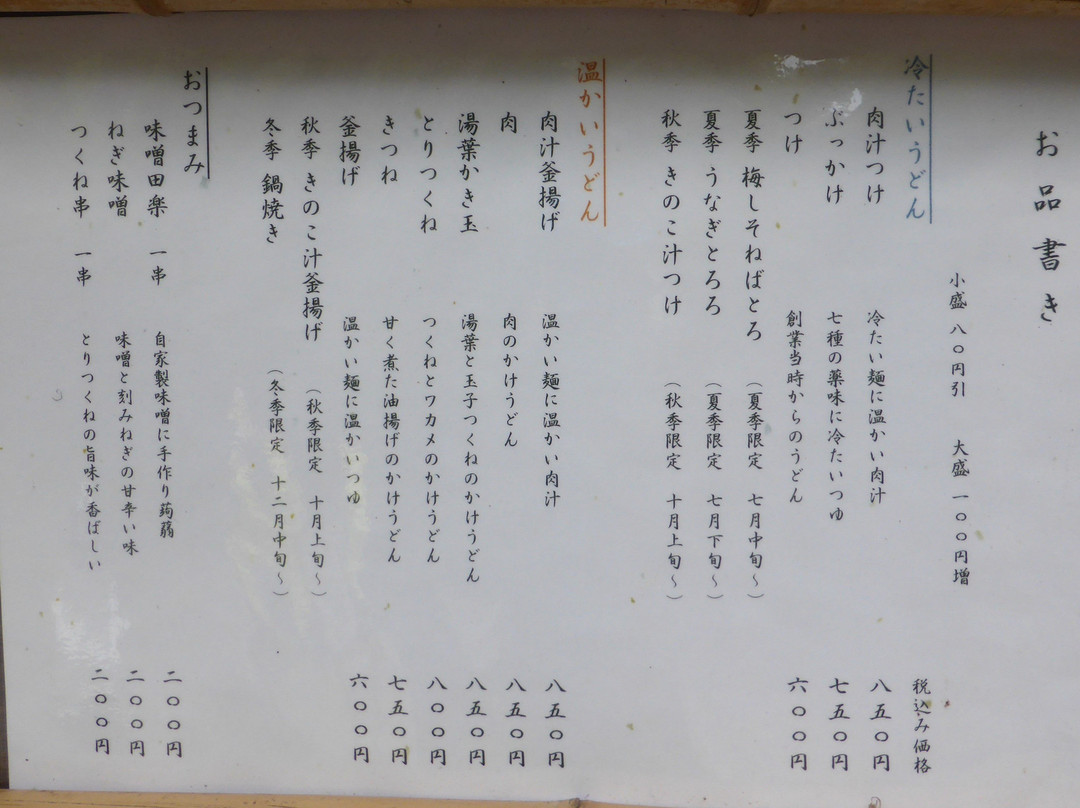 お品書き
小盛 八〇円引 大盛 一〇〇円増
冷たいうどん 税込み価格
肉汁つけ 冷たい麺に温かい肉汁 八五〇円
ぶっかけ 七種の薬味に冷たいつゆ 七五〇円
つけ 創業当時からのうどん 六〇〇円
夏季 梅しそねばとろ （夏季限定 七月中旬～）
夏季 うなぎとろろ （夏季限定 七月下旬～）
秋季 きのこ汁つけ （秋季限定 十月上旬～）
温かいうどん
肉汁釜揚げ 温かい麺に温かい肉汁 八五〇円
肉 肉のかけうどん 八五〇円
湯葉かき玉 湯葉と玉子つくねのかけうどん 八五〇円
とりつくね つくねとワカメのかけうどん 八〇〇円
きつね 甘く煮た油揚げのかけうどん 七五〇円
釜揚げ 温かい麺に温かいつゆ 六〇〇円
秋季 きのこ汁釜揚げ （秋季限定 十月上旬～）
冬季 鍋焼き （冬季限定 十二月中旬～）
おつまみ
味噌田楽 一串 自家製味噌に手作り蒟蒻 二〇〇円
ねぎ味噌 味噌と刻みねぎの甘辛い味 二〇〇円
つくね串 一串 とりつくねの旨味が香ばしい 二〇〇円